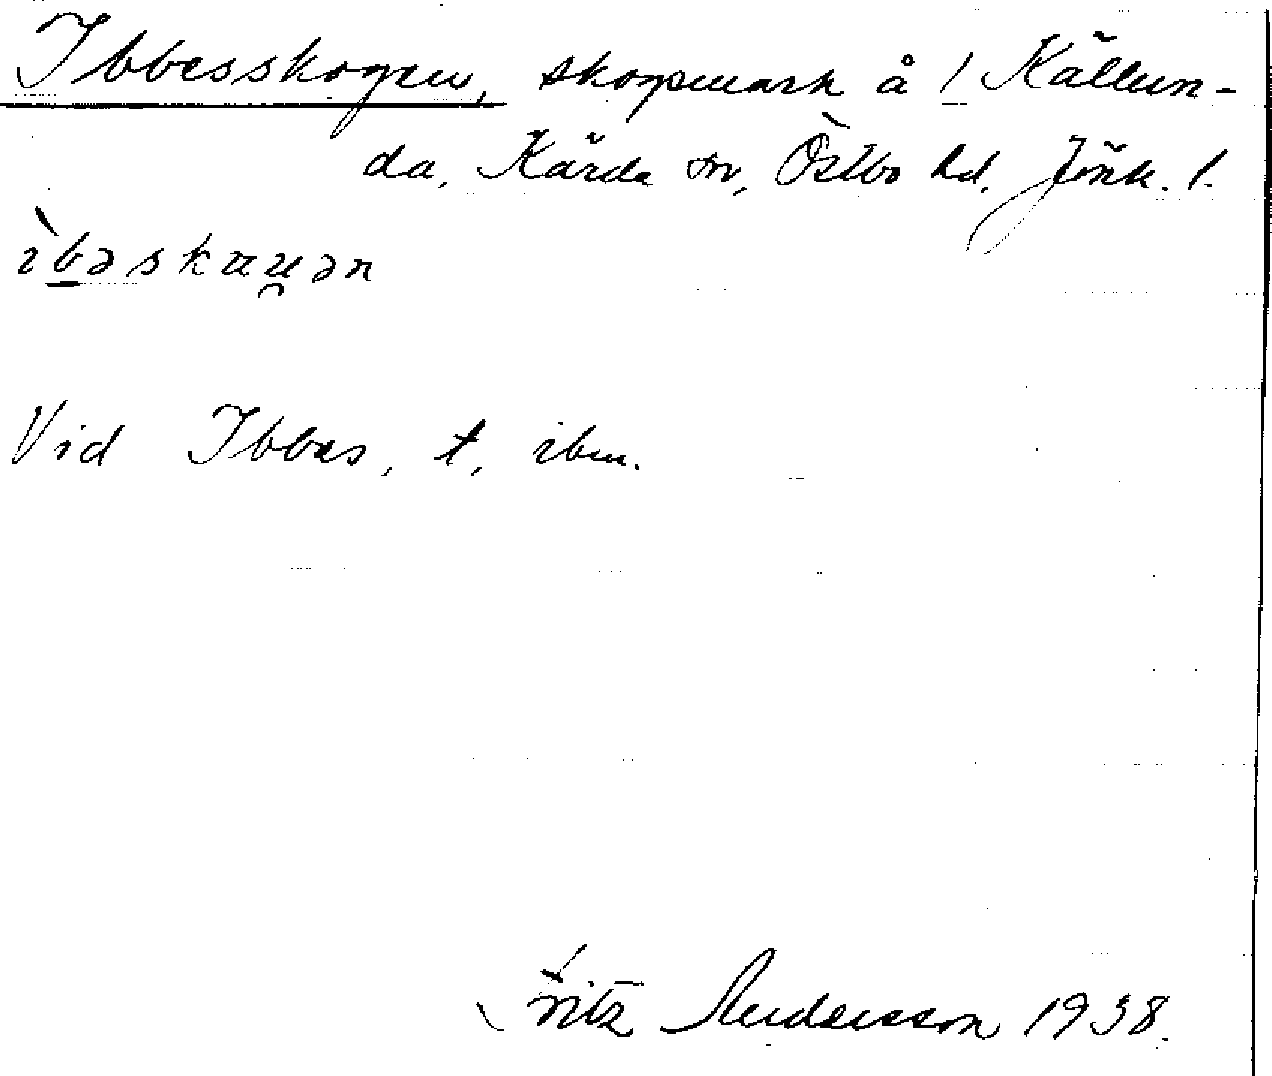 Ibbesskogen, skogsmark å 1 Källun-
da, Kärda sn, Östbo hd, Jönk. l.
ìbəskau̯ən
Vid Ibbes, t, ibm.
Fritz Andersson 1938